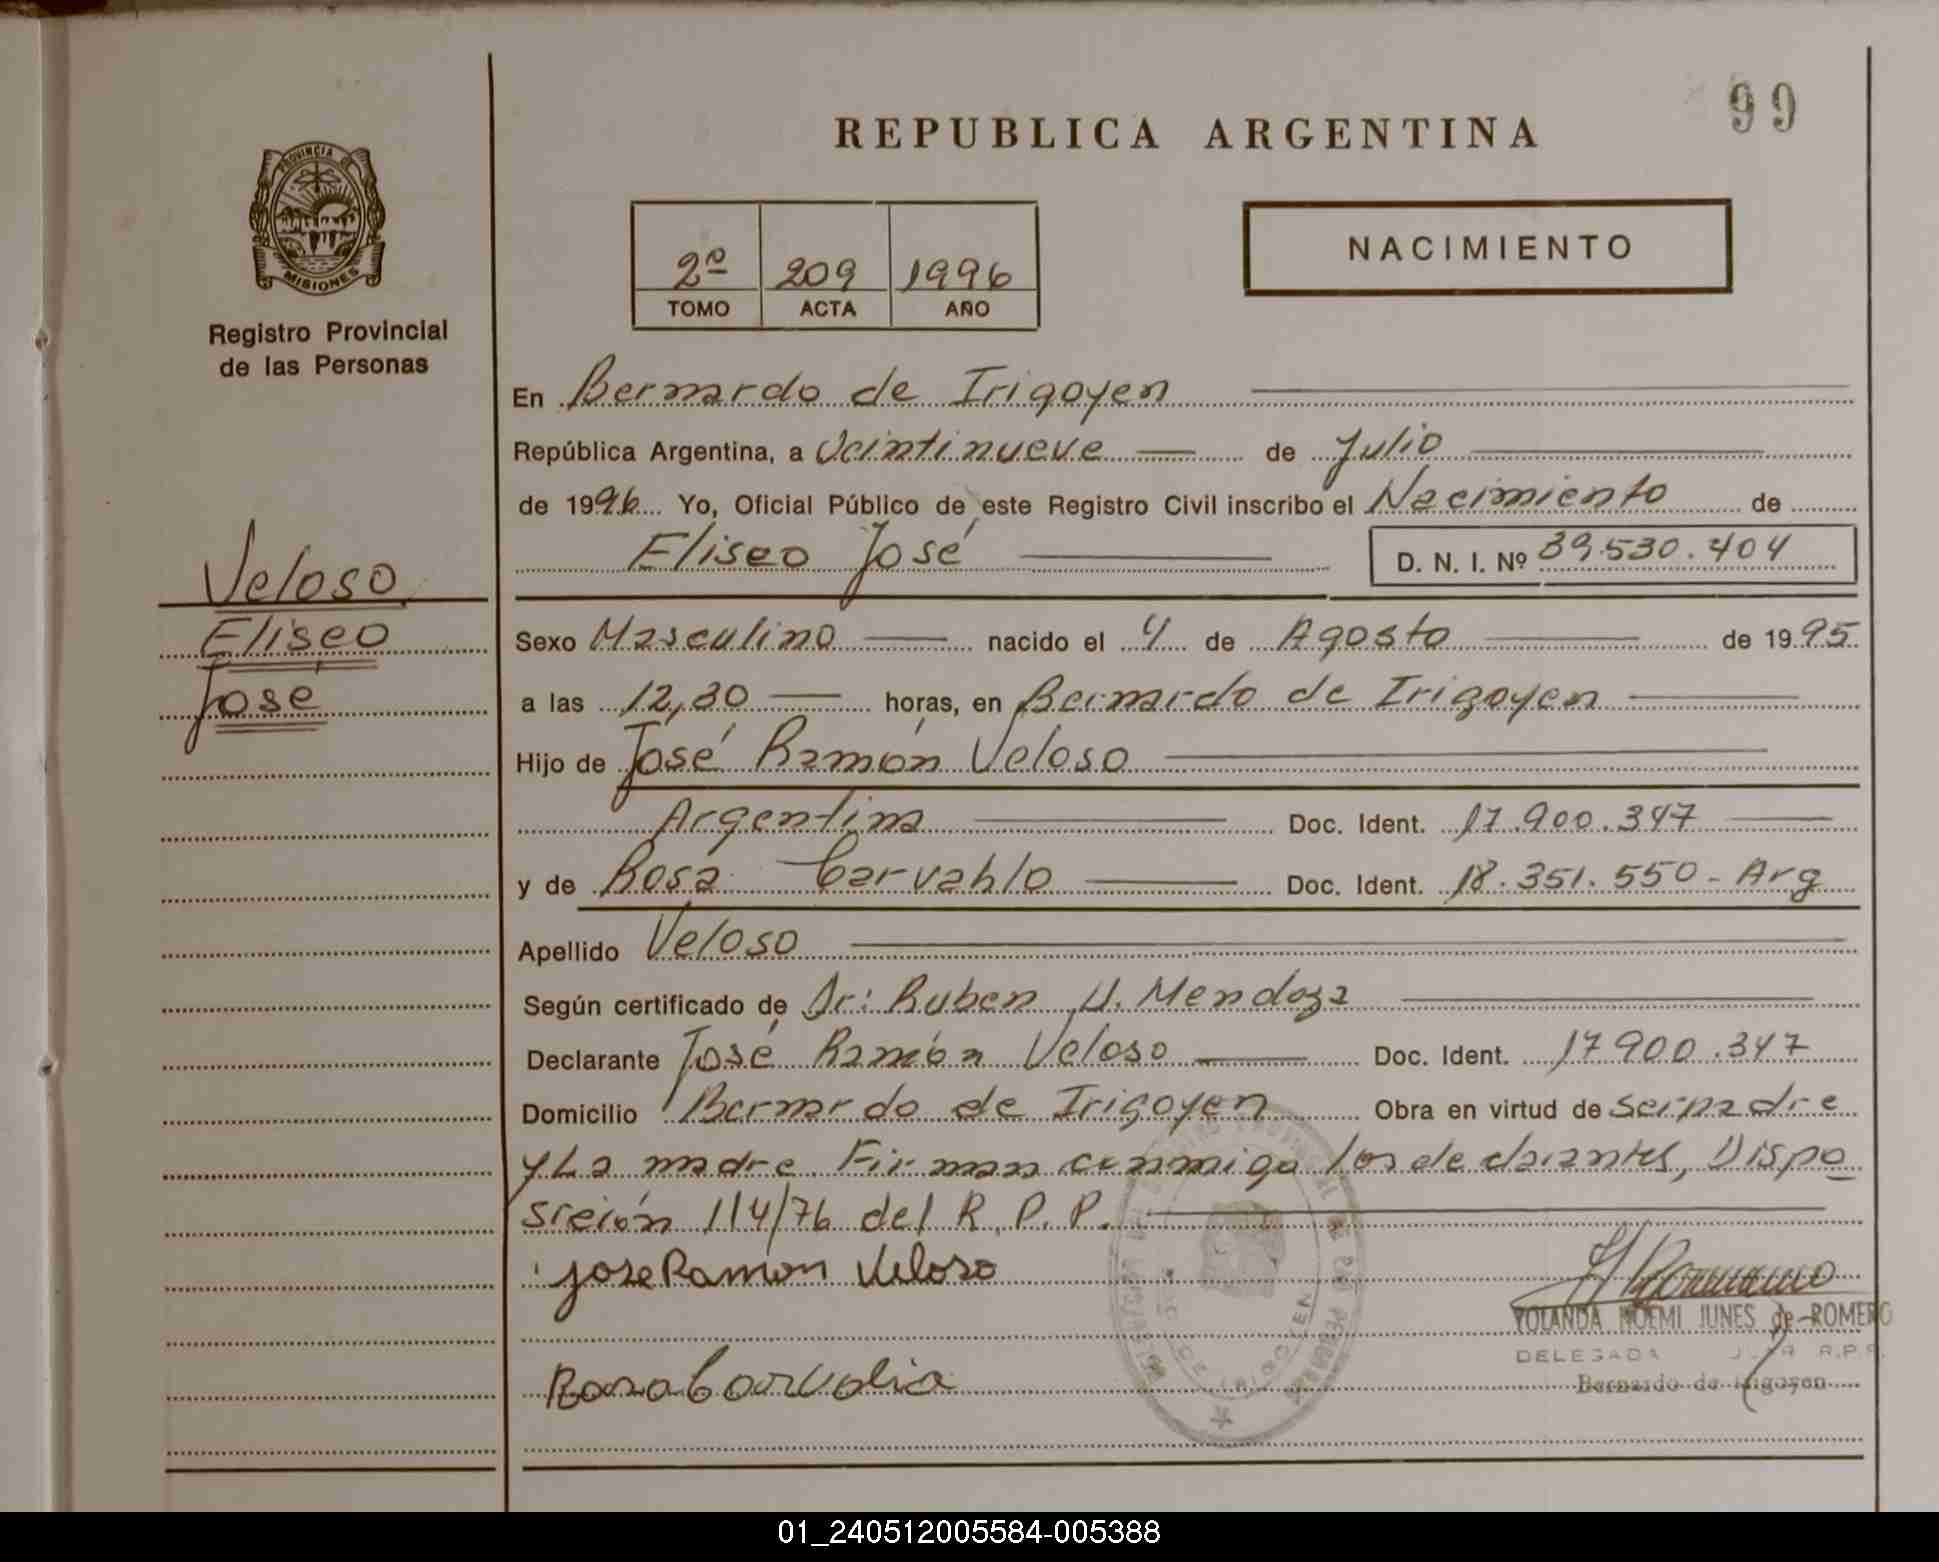 99
REPUBLICA ARGENTINA
PROVINCIA DE
MISIONES
Registro Provincial
de las Personas
2º 209 1996
TOMO ACTA AÑO
NACIMIENTO
En Bernardo de Irigoyen
República Argentina, a Veintinueve de Julio
de 1996 Yo, Oficial Público de este Registro Civil inscribo el Nacimiento de
Eliseo José D. N. I. Nº 39.530.404
Veloso
Eliseo
José
Sexo Masculino nacido el 4 de Agosto de 1995
a las 12,30 horas, en Bernardo de Irigoyen
Hijo de José Ramón Veloso
Argentina Doc. Ident. 17.900.347
y de Rosa Carvahlo Doc. Ident. 18.351.550 - Arg
Apellido Veloso
Según certificado de Dr: Ruben U. Mendoza
Declarante José Ramón Veloso Doc. Ident. 17.900.347
Domicilio Bernardo de Irigoyen Obra en virtud de ser padre
y La madre. Firman conmigo los declarantes, Dispo
sición 114/76 del R.P.P.
jose Ramon Veloso
YOLANDA NOEMI JUNES de ROMERO
DELEGADA R.P.P.
Bernardo de Irigoyen
Rosa Carvalia
01_240512005584-005388